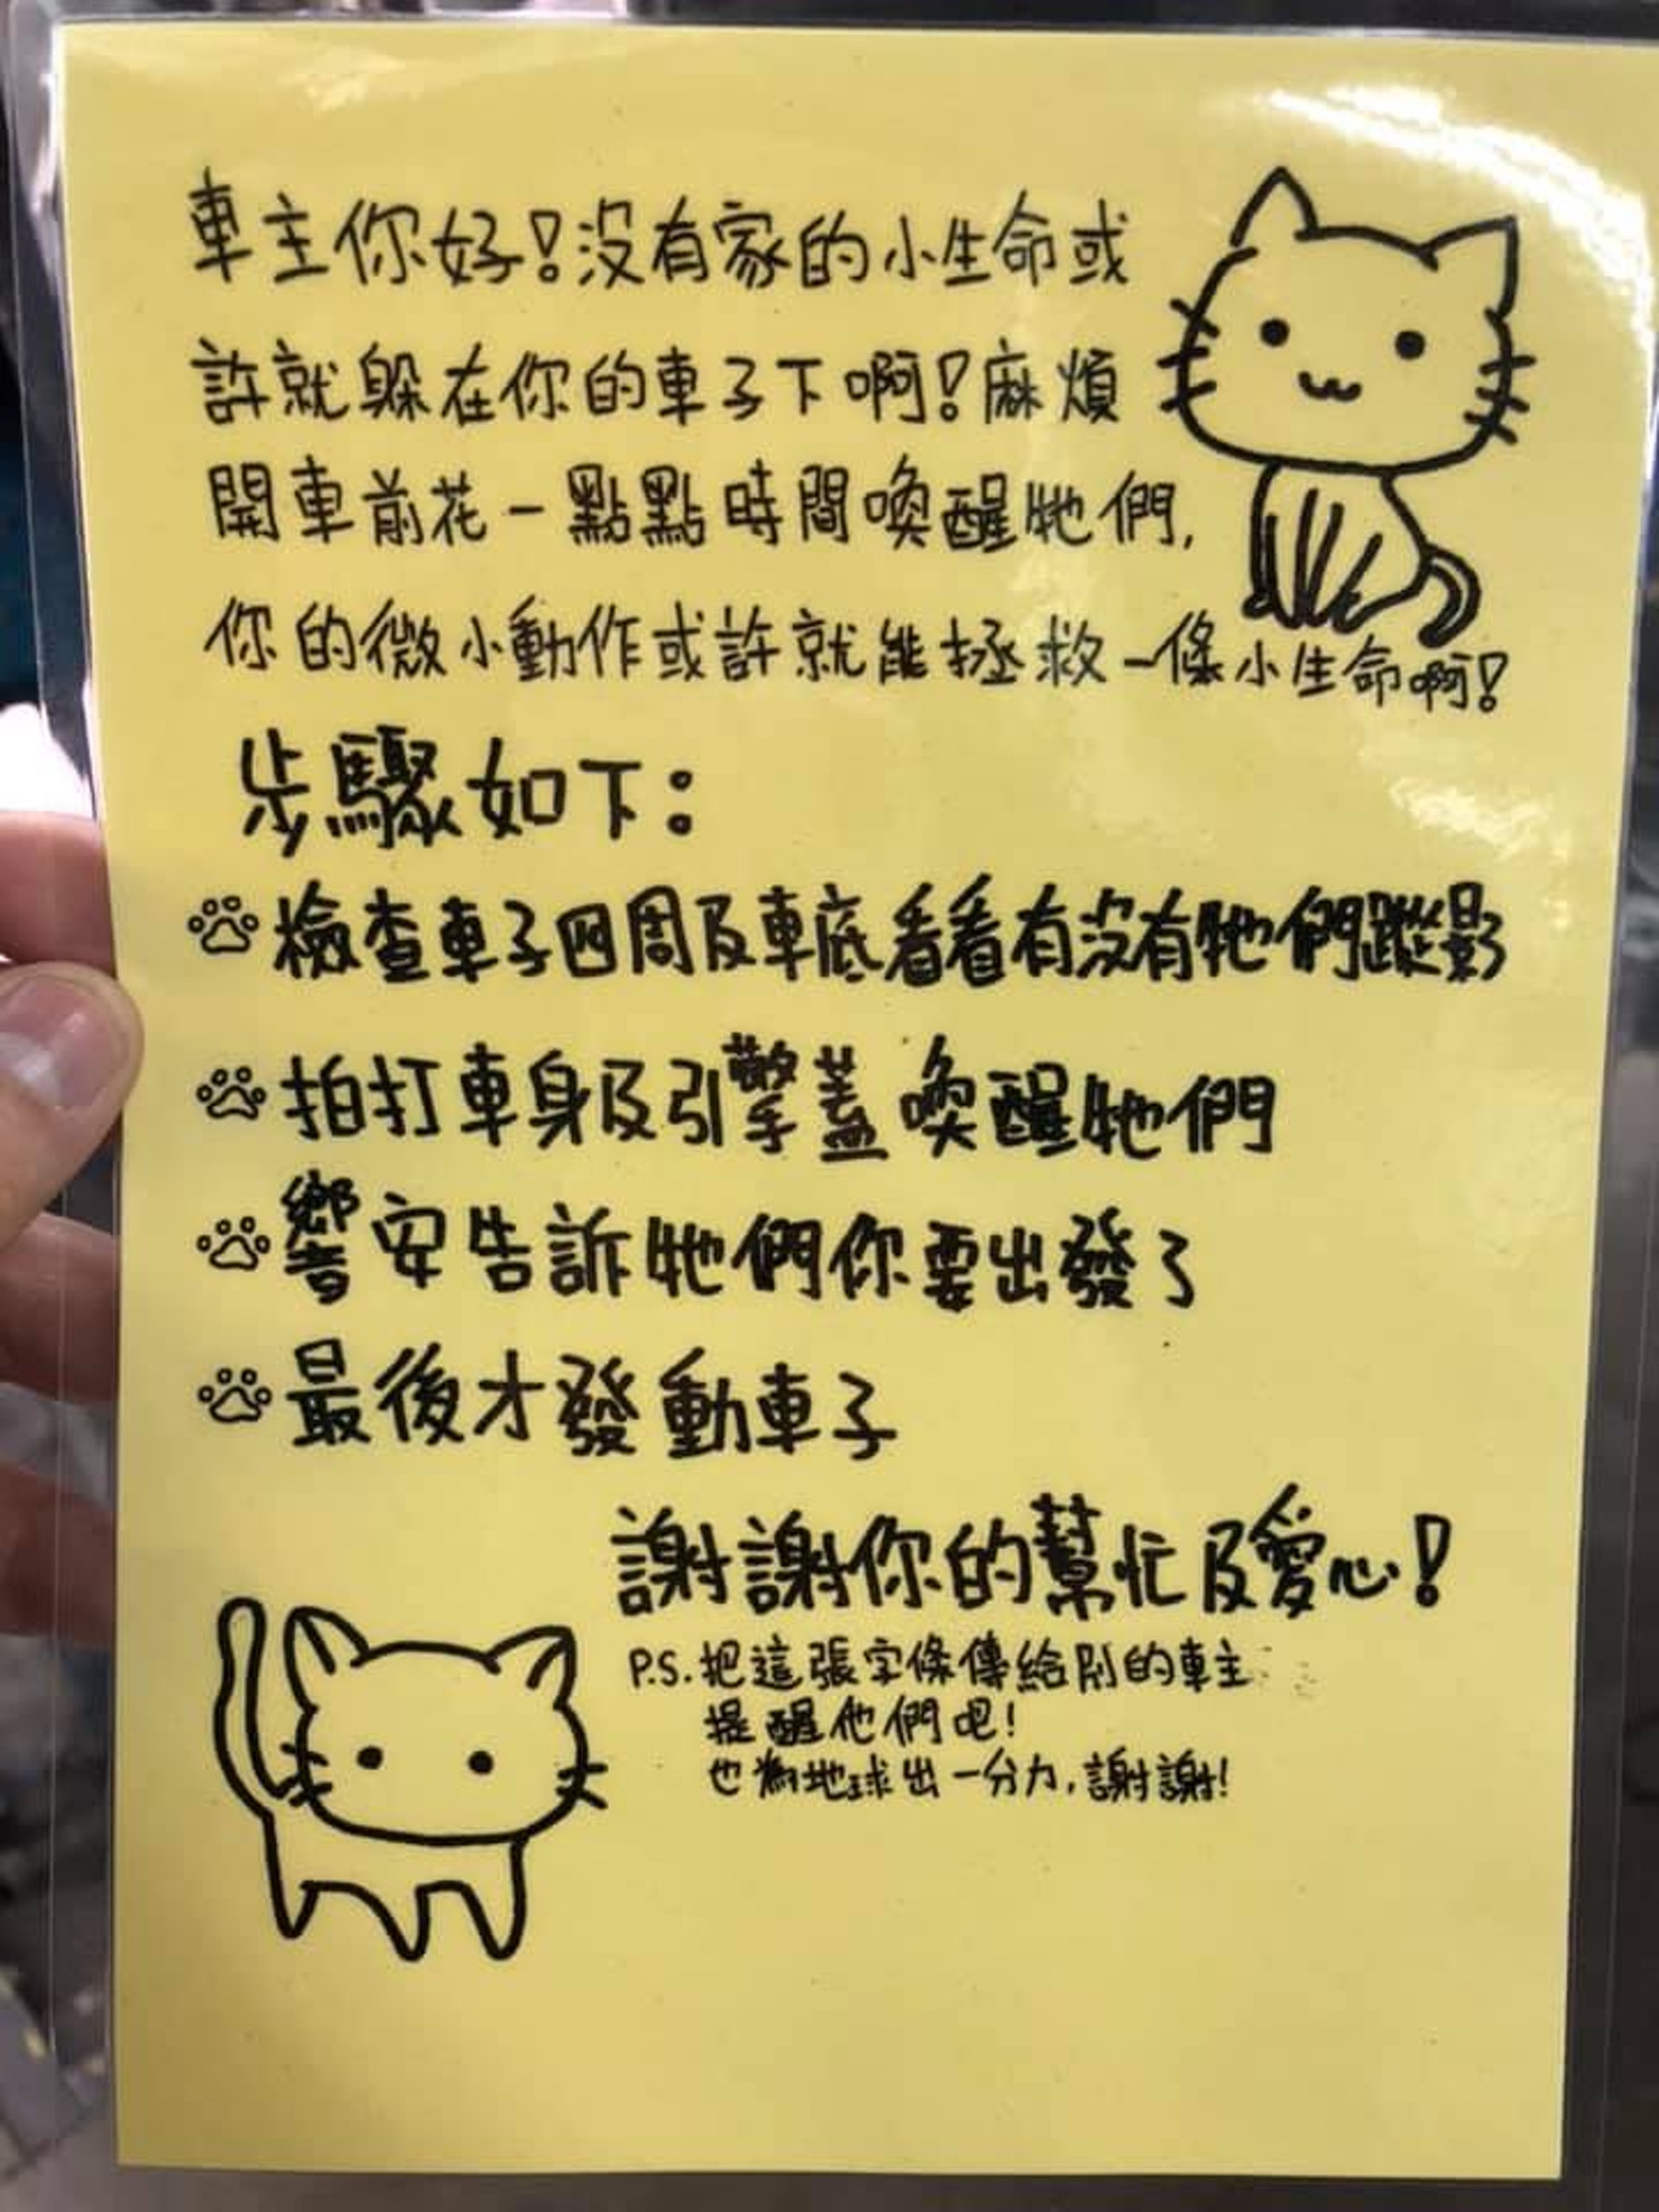 車主你好!沒有家的小生命或
許就躲在你的車子下啊!麻煩
開車前花一點點時間喚醒牠們,
你的微小動作或許就能拯救一條小生命啊!
步驟如下:
檢查車子四周及車底看看有沒有牠們蹤影
拍打車身及引擎蓋喚醒牠們
響安告訴牠們你要出發了
最後才發動車子
謝謝你的幫忙及愛心!
P.S.把這張字條傳給別的車主
提醒他們吧!
也為地球出一分力,謝謝!